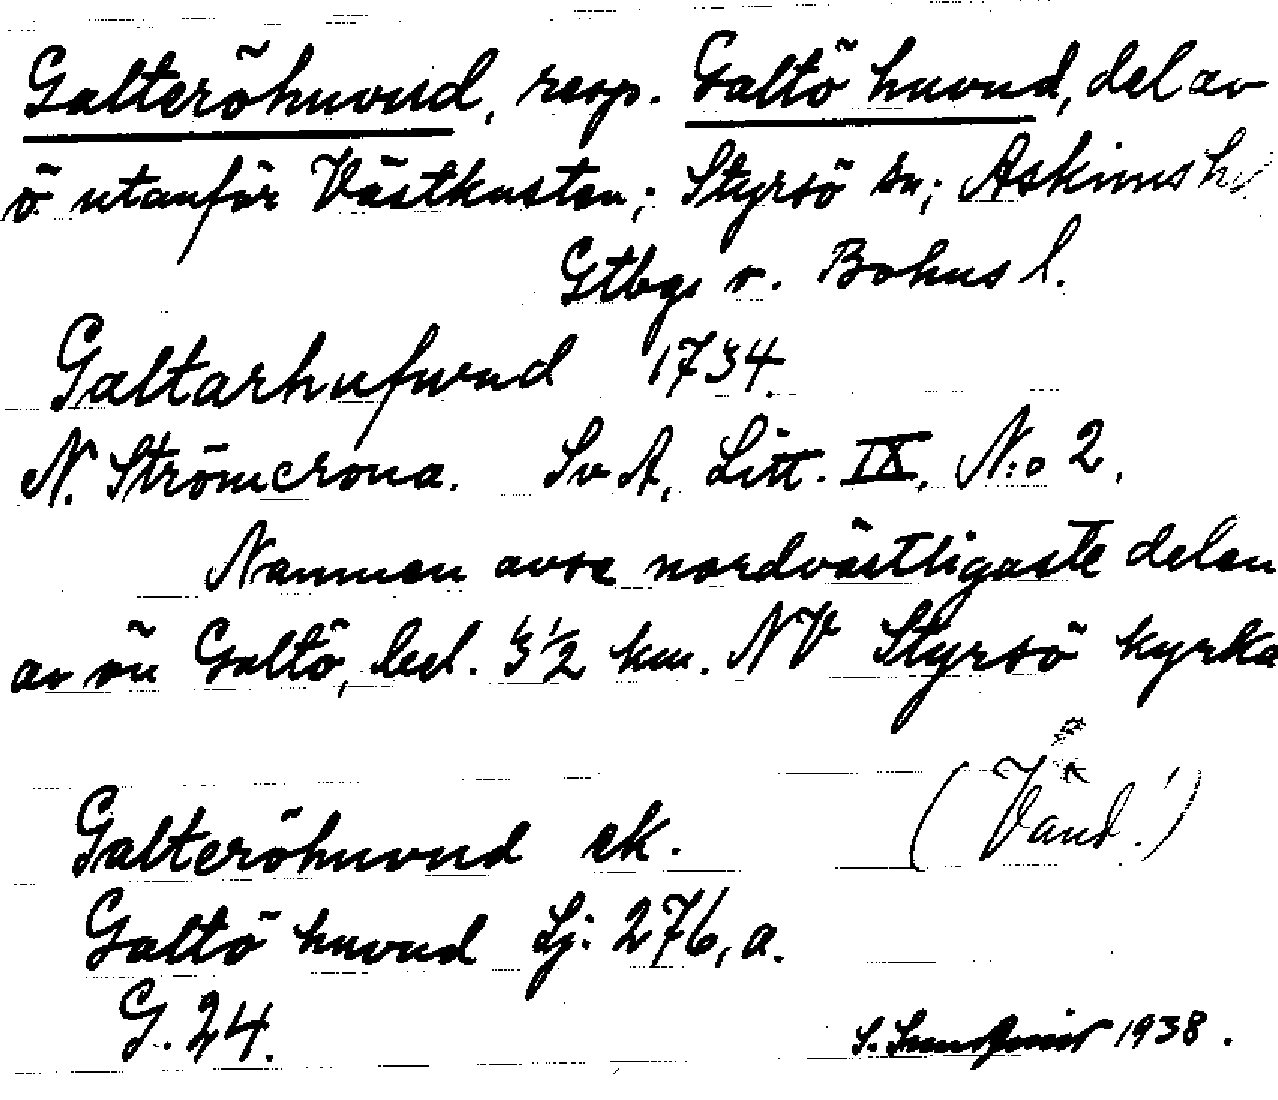 Galteröhuvud, resp. Galtö huvud, del av
ö utanför Västkusten; Styrsö sn; Askims hd
Gtbgs o. Bohus l.
Galtarhufwud 1734.
N. Strömcrona. SvA, Litt. IX, N:o 2.
Namnen avse nordvästligaste delen
av ön Galtö, bel. 3 1/2 km. NV Styrsö kyrka
(Vänd!)
Galteröhuvud ek.
Galtö huvud Sj. 276, a.
G. 24.
1938.